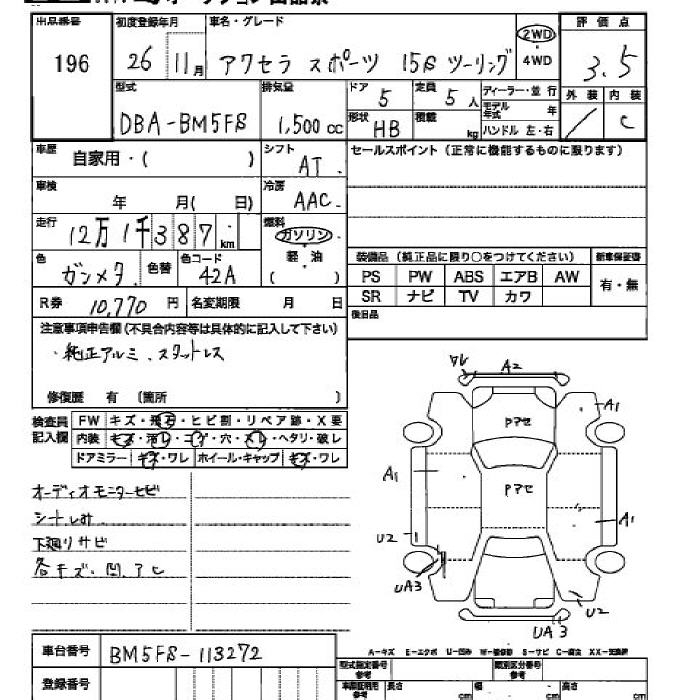 オークション出品票
出品番号 初度登録年月 車名・グレード 評価点
196 26 11月 アクセラ スポーツ 15S ツーリング 2WD ・ 4WD 3.5
型式 排気量 ドア 5 定員 5 人 ディーラー・並行 外装 内装
DBA-BM5FS 1,500 cc 形状 HB 積載 kg モデル年式 年 ハンドル 左・右 / C
車歴 自家用・( ) シフト AT セールスポイント (正常に機能するものに限ります)
車検 年 月( 日) 冷房 AAC
走行 12万1千387 km 燃料 ガソリン
軽・油
( )
色 ガンメタ 色替 色コード 42A 装備品 (純正品に限り○をつけてください) 新車保証書
PS PW ABS エアB AW 有・無
SR ナビ TV カワ
R券 10,770 円 名変期限 月 日 後日品
注意事項申告欄 (不具合内容等は具体的に記入して下さい)
・純正アルミ・スタットレス
修復歴 有 〔箇所 〕
検査員記入欄 FW キズ・飛石・ヒビ割・リペア跡・X要
内装 キズ・汚レ・コゲ・穴・スレ・ヘタリ・破レ
ドアミラー キズ・ワレ ホイール・キャップ キズ・ワレ
オーディオモニターセビ
シートしみ
下廻りサビ
各キズ・凹・アヒ
ワレ A2
Pアセ A1
A1 Pアセ
U2 A1
UA3 U2
UA3
A-キズ E-エクボ U-凹み S-サビ C-腐食 XX-交換済
車台番号 BM5FS-113272
登録番号
型式指定番号 参考 類別区分番号 参考
長さ cm 幅 cm 高さ cm